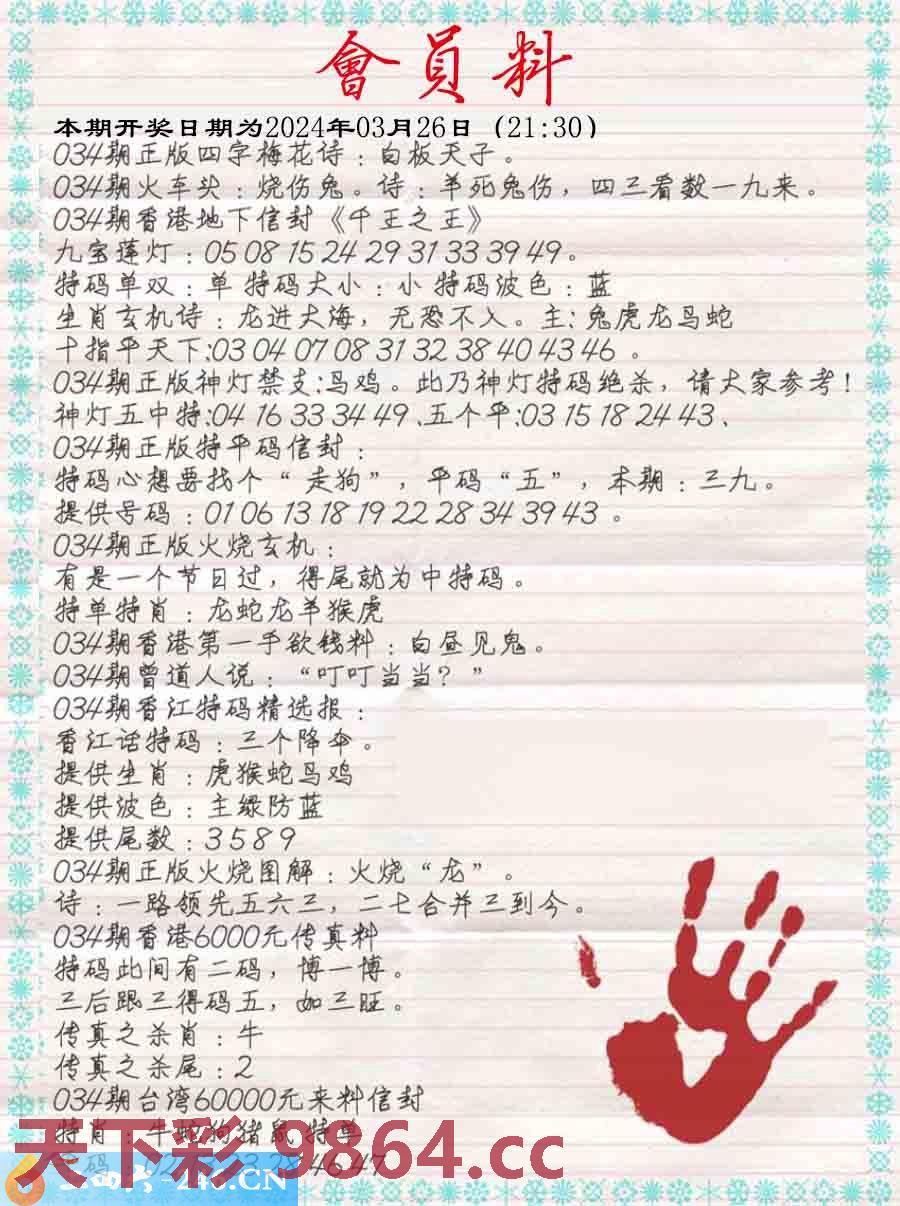 會員料
本期开奖日期为2024年03月26日（21:30）
034期正版四字梅花诗：白板天子。
034期火车头：烧伤兔。诗：羊死兔伤，四三看数一九来。
034期香港地下信封《千王之王》
九宝莲灯：05 08 15 24 29 31 33 39 49。
特码单双：单 特码大小：小 特码波色：蓝
生肖玄机诗：龙进大海，无恐不入。主：兔虎龙马蛇
十指平天下:03 04 07 08 31 32 38 40 43 46 。
034期正版神灯禁支:马鸡。此乃神灯特码绝杀，请大家参考！
神灯五中特:04 16 33 34 49 、五个平:03 15 18 24 43、
034期正版特平码信封：
特码心想要找个“走狗”，平码“五”，本期：三九。
提供号码：01 06 13 18 19 22 28 34 39 43 。
034期正版火烧玄机：
有是一个节日过，得尾就为中特码。
特单特肖：龙蛇龙羊猴虎
034期香港第一手欲钱料：白昼见鬼。
034期曾道人说：“叮叮当当？”
034期香江特码精选报：
香江话特码：三个降伞。
提供生肖：虎猴蛇马鸡
提供波色：主绿防蓝
提供尾数：3 5 8 9
034期正版火烧图解：火烧“龙”。
诗：一路领先五六三，二七合并三到今。
034期香港6000元传真料
特码此间有二码，博一博。
三后跟三得码五，如三旺。
传真之杀肖：牛
传真之杀尾：2
034期台湾60000元来料信封
特肖：牛蛇狗猪鼠 特单
28 46 47
天下彩-9864.cc
-246.CN